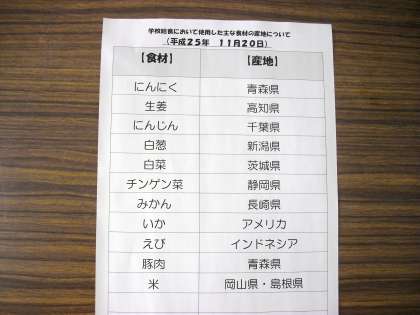 学校給食において使用した主な食材の産地について
(平成25年 11月20日)
【食材】 【産地】
にんにく 青森県
生姜 高知県
にんじん 千葉県
白葱 新潟県
白菜 茨城県
チンゲン菜 静岡県
みかん 長崎県
いか アメリカ
えび インドネシア
豚肉 青森県
米 岡山県・島根県